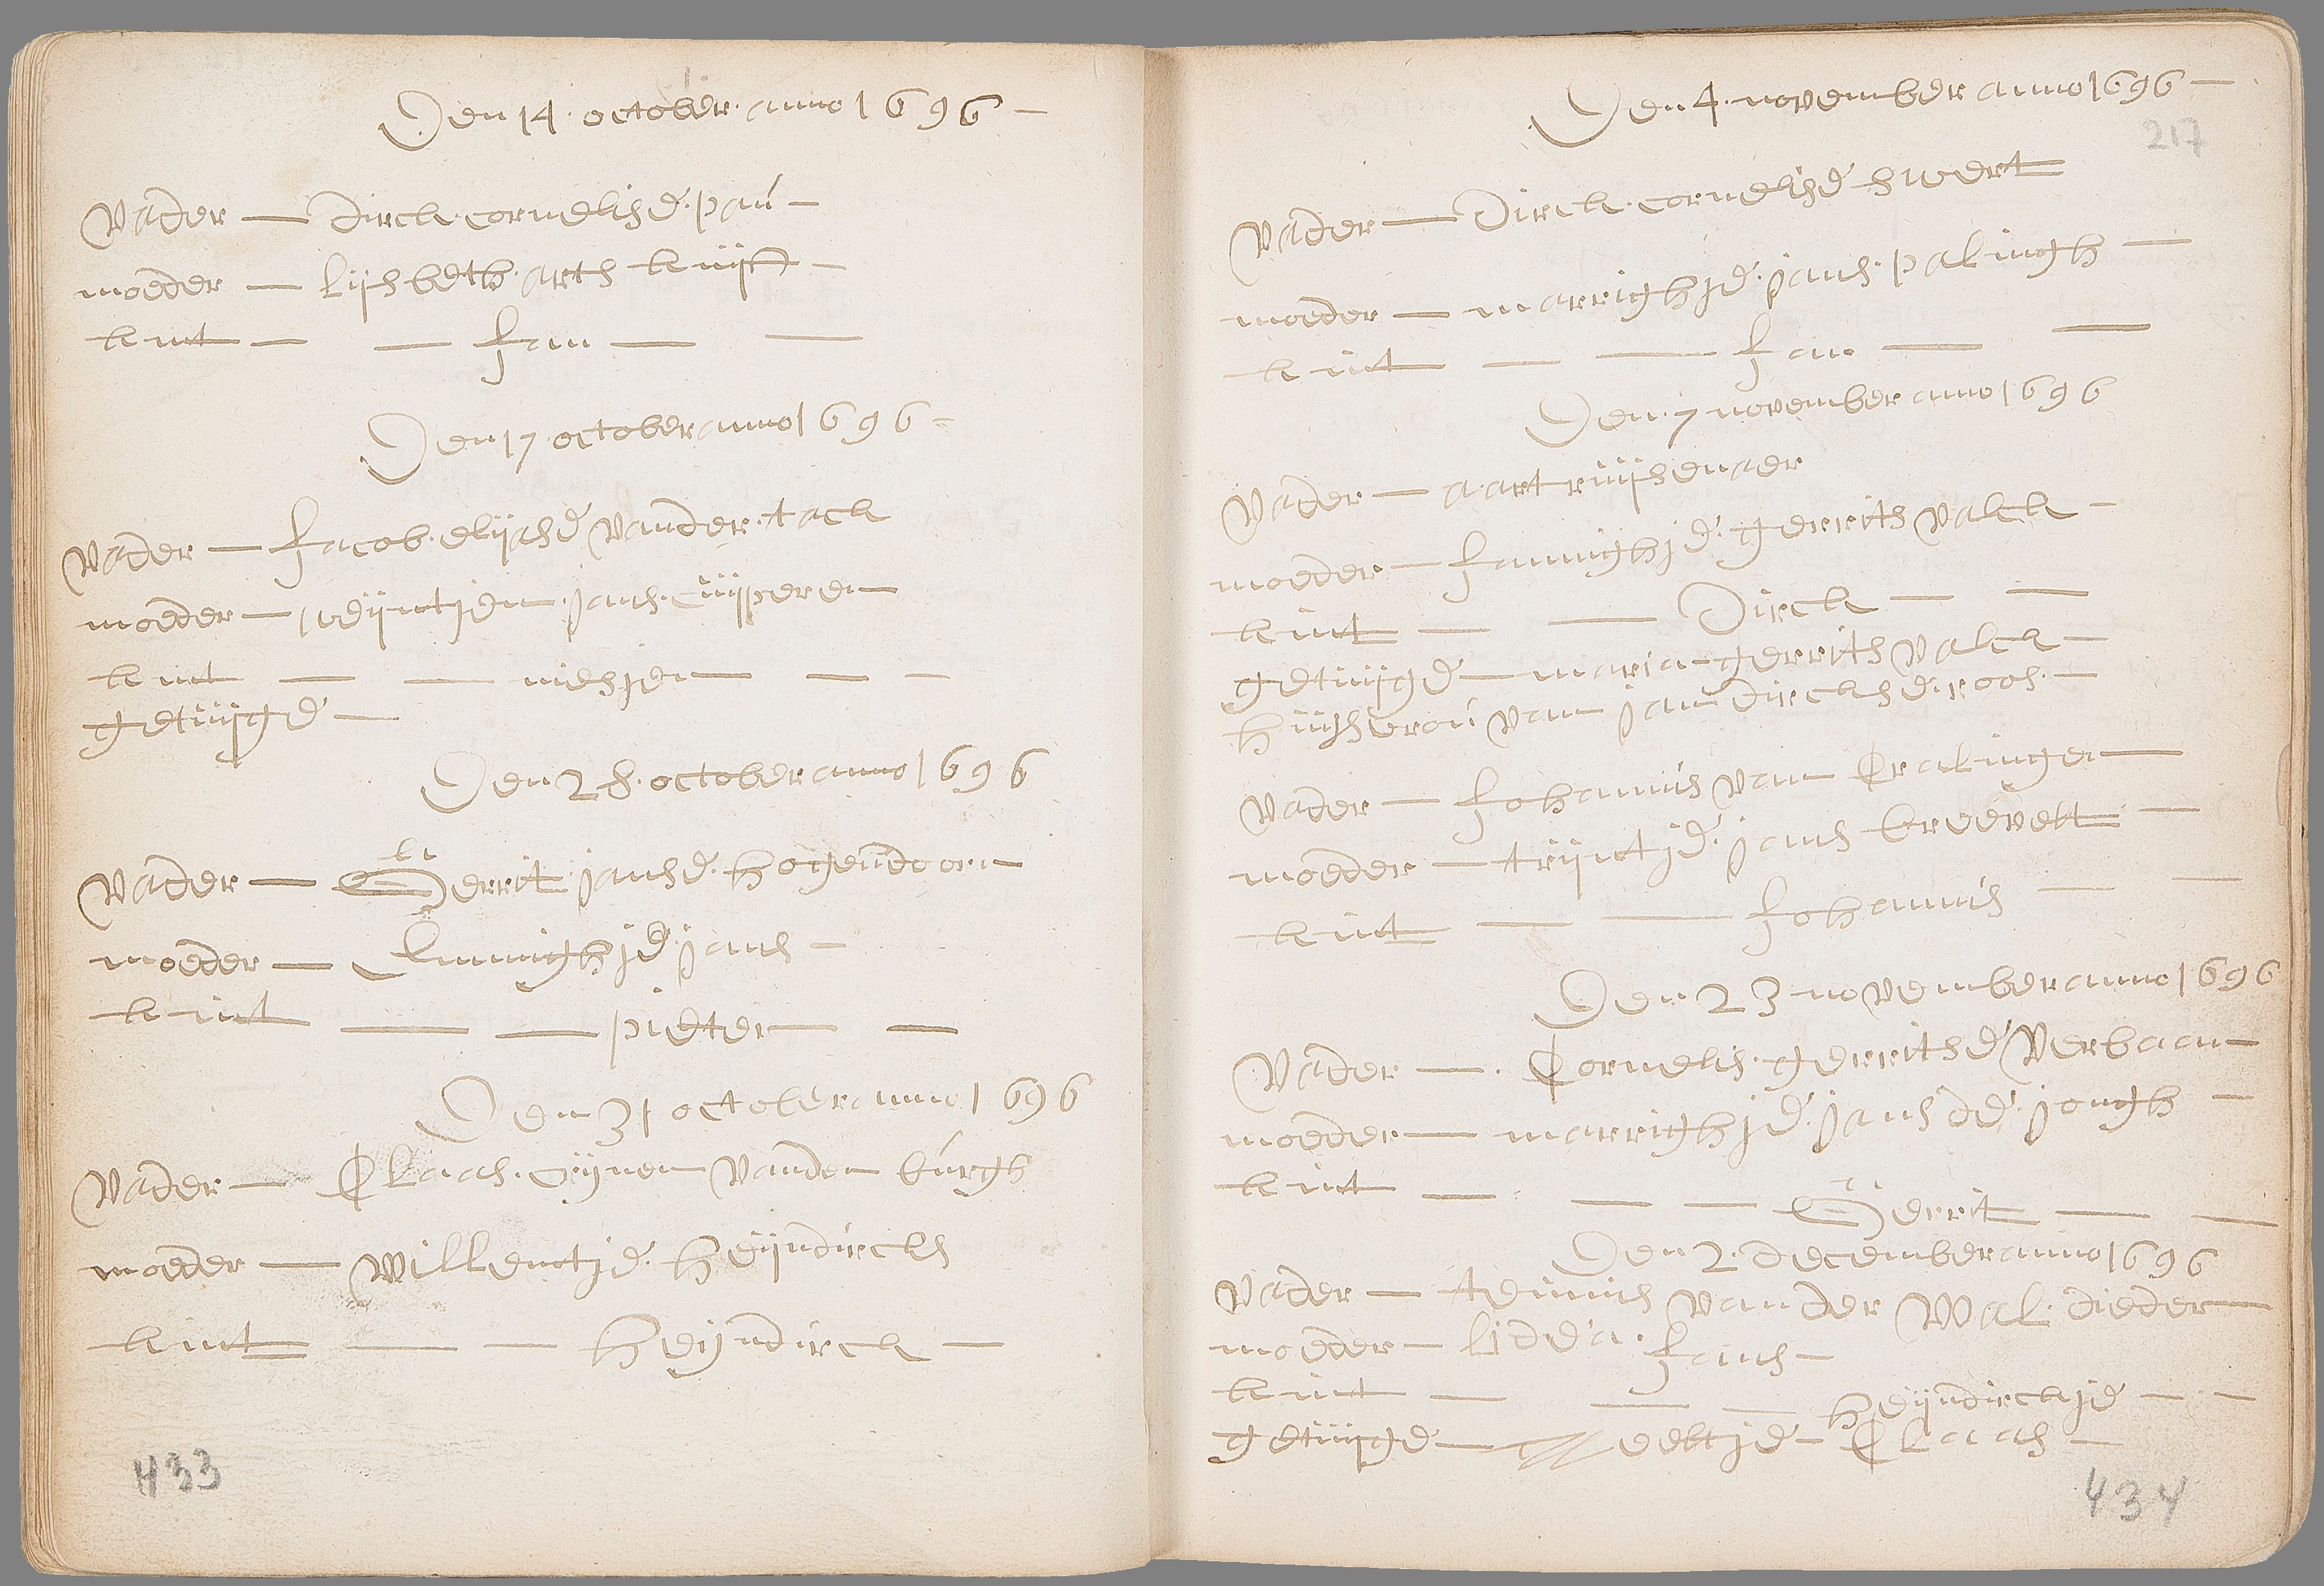 Den 14 october anno 1696 –
Vader — Dirck cornelisse pau –
moeder — lijsbeth arts kuijf –
kint — — Jan — —
Den 17 october anno 1696 –
Vader — Jacob elijasse vander tack
moeder — weijntjen jans cuijperen
kint — — niesjen — — –
getuijge —
Den 28 october anno 1696
Vader — Gerrit jansse hogendoorn
moeder — Annighje jans –
kint — — pieter — —
Den 31 october anno 1696
Vader — Claas crijnen vanden burgh
moeder — Willemtje heijndircks
kint — — heijndirck —
433
Den 4 november anno 1696 –
217
Vader — Dirck cornelisse swert
moeder — marrighje jans palingh —
kint — — Jan — —
Den 7 november anno 1696
Vader — aart ruijsenaer
moeder — Jannighje gerrits valck –
kint — — Dirck — —
getuijge — maria gerrits valck –
huijsvrou van jan dircksse roos –
Vader — Johannis van Cralingen
moeder — trijntje jans breevelt —
kint — — Johannis — —
Den 23 november anno 1696
Vader — Cornelis gerritse Verbaan
moeder — marrighje jans de jongh –
kint — — — Gerrit — —
Den 2 december anno 1696
Vader — teunis vander Wal dieder
moeder – lidda Jans –
kint — — — heijndirckje — –
getuijge — neeltje – Claas –
434